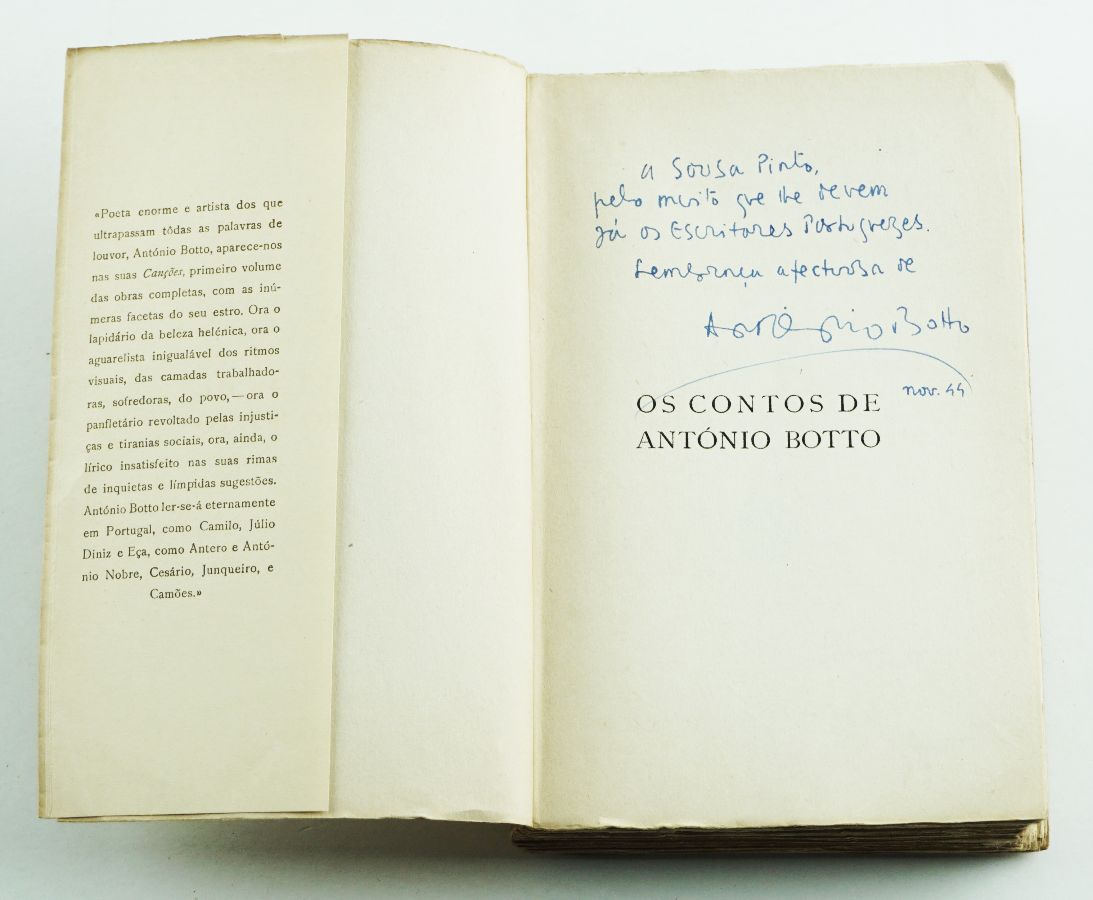 «Poeta enorme e artista dos que
ultrapassam tôdas as palavras de
louvor, António Botto, aparece-nos
nas suas Canções, primeiro volume
das obras completas, com as inú-
meras facetas do seu estro. Ora o
lapidário da beleza helénica, ora o
aguarelista inigualável dos ritmos
visuais, das camadas trabalhado-
ras, sofredoras, do povo,—ora o
panfletário revoltado pelas injusti-
ças e tiranias sociais, ora, ainda, o
lírico insatisfeito nas suas rimas
de inquietas e límpidas sugestões.
António Botto ler-se-á eternamente
em Portugal, como Camilo, Júlio
Diniz e Eça, como Antero e Antó-
nio Nobre, Cesário, Junqueiro, e
Camões.»
A Sousa Pinto,
pelo muito que lhe devem
já os Escritores Portuguezes.
Lembrança afectuosa de
António Botto
nov. 44
OS CONTOS DE
ANTÓNIO BOTTO